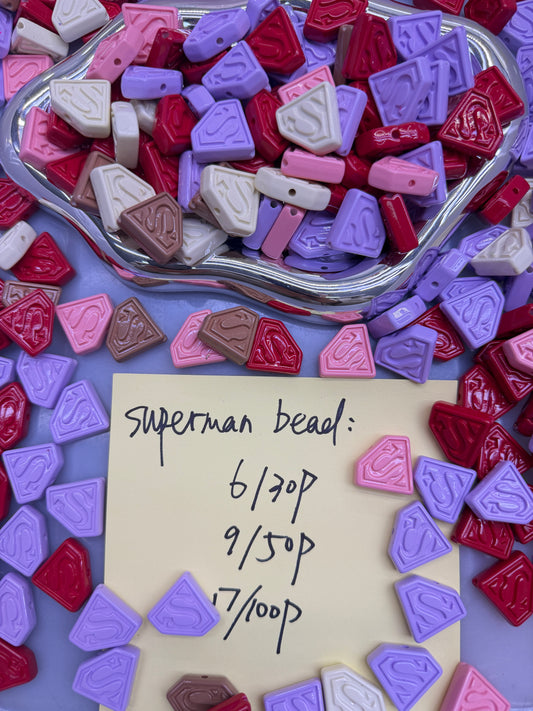 superman bead:
6/30p
9/50p
17/100p